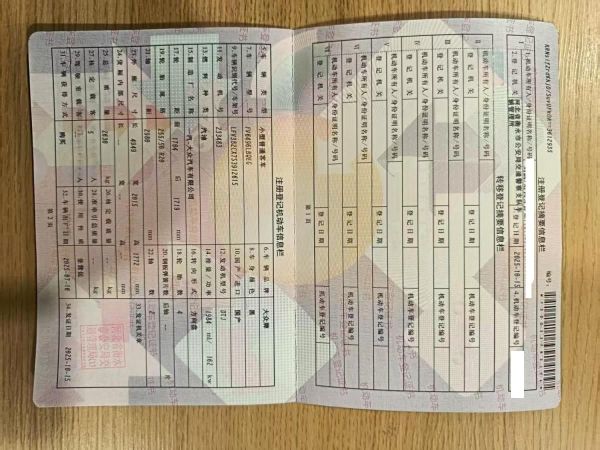 注册登记摘要信息栏
1.机动车所有人/身份证明名称/号码
2.登记机关 河北省衡水市公安局交通警察支队车辆管理所 3.登记日期 2025-10-15 4.机动车登记编号
转移登记摘要信息栏
机动车所有人/身份证明名称/号码
登记机关 登记日期 机动车登记编号
机动车所有人/身份证明名称/号码
登记机关 登记日期 机动车登记编号
机动车所有人/身份证明名称/号码
登记机关 登记日期 机动车登记编号
机动车所有人/身份证明名称/号码
登记机关 登记日期 机动车登记编号
机动车所有人/身份证明名称/号码
登记机关 登记日期 机动车登记编号
机动车所有人/身份证明名称/号码
登记机关 登记日期 机动车登记编号
第1页
注册登记机动车信息栏
5.车辆类型 小型普通客车 6.车辆品牌 大众牌
7.车辆型号 8.车身颜色 黑
9.车辆识别代号/车架号 10.国产/进口 国产
11.发动机号 12.发动机型号
13.燃料种类 汽油 14.排量/功率 1984 ml/ 162 kw
15.制造厂名称 大众汽车有限公司 16.转向形式 方向盘
17.轮距 前 后 1719 mm 18.轮胎数 4
19.轮胎规格 20.钢板弹簧片数 后轴 片
21.轴距 2980 mm 22.轴数 2
23.外廓尺寸 长 4949 宽 2015 高 1772 mm 33.发证机关章
24.货厢内部尺寸 长 宽 高 mm
25.总质量 2630 kg 26.核定载质量 kg
27.核定载客 5 人 28.准牵引总质量 kg
29.驾驶室载客 人 30.使用性质 非营运
31.车辆获得方式 购买 32.车辆出厂日期 34.发证日期 2025-10-15
第2页